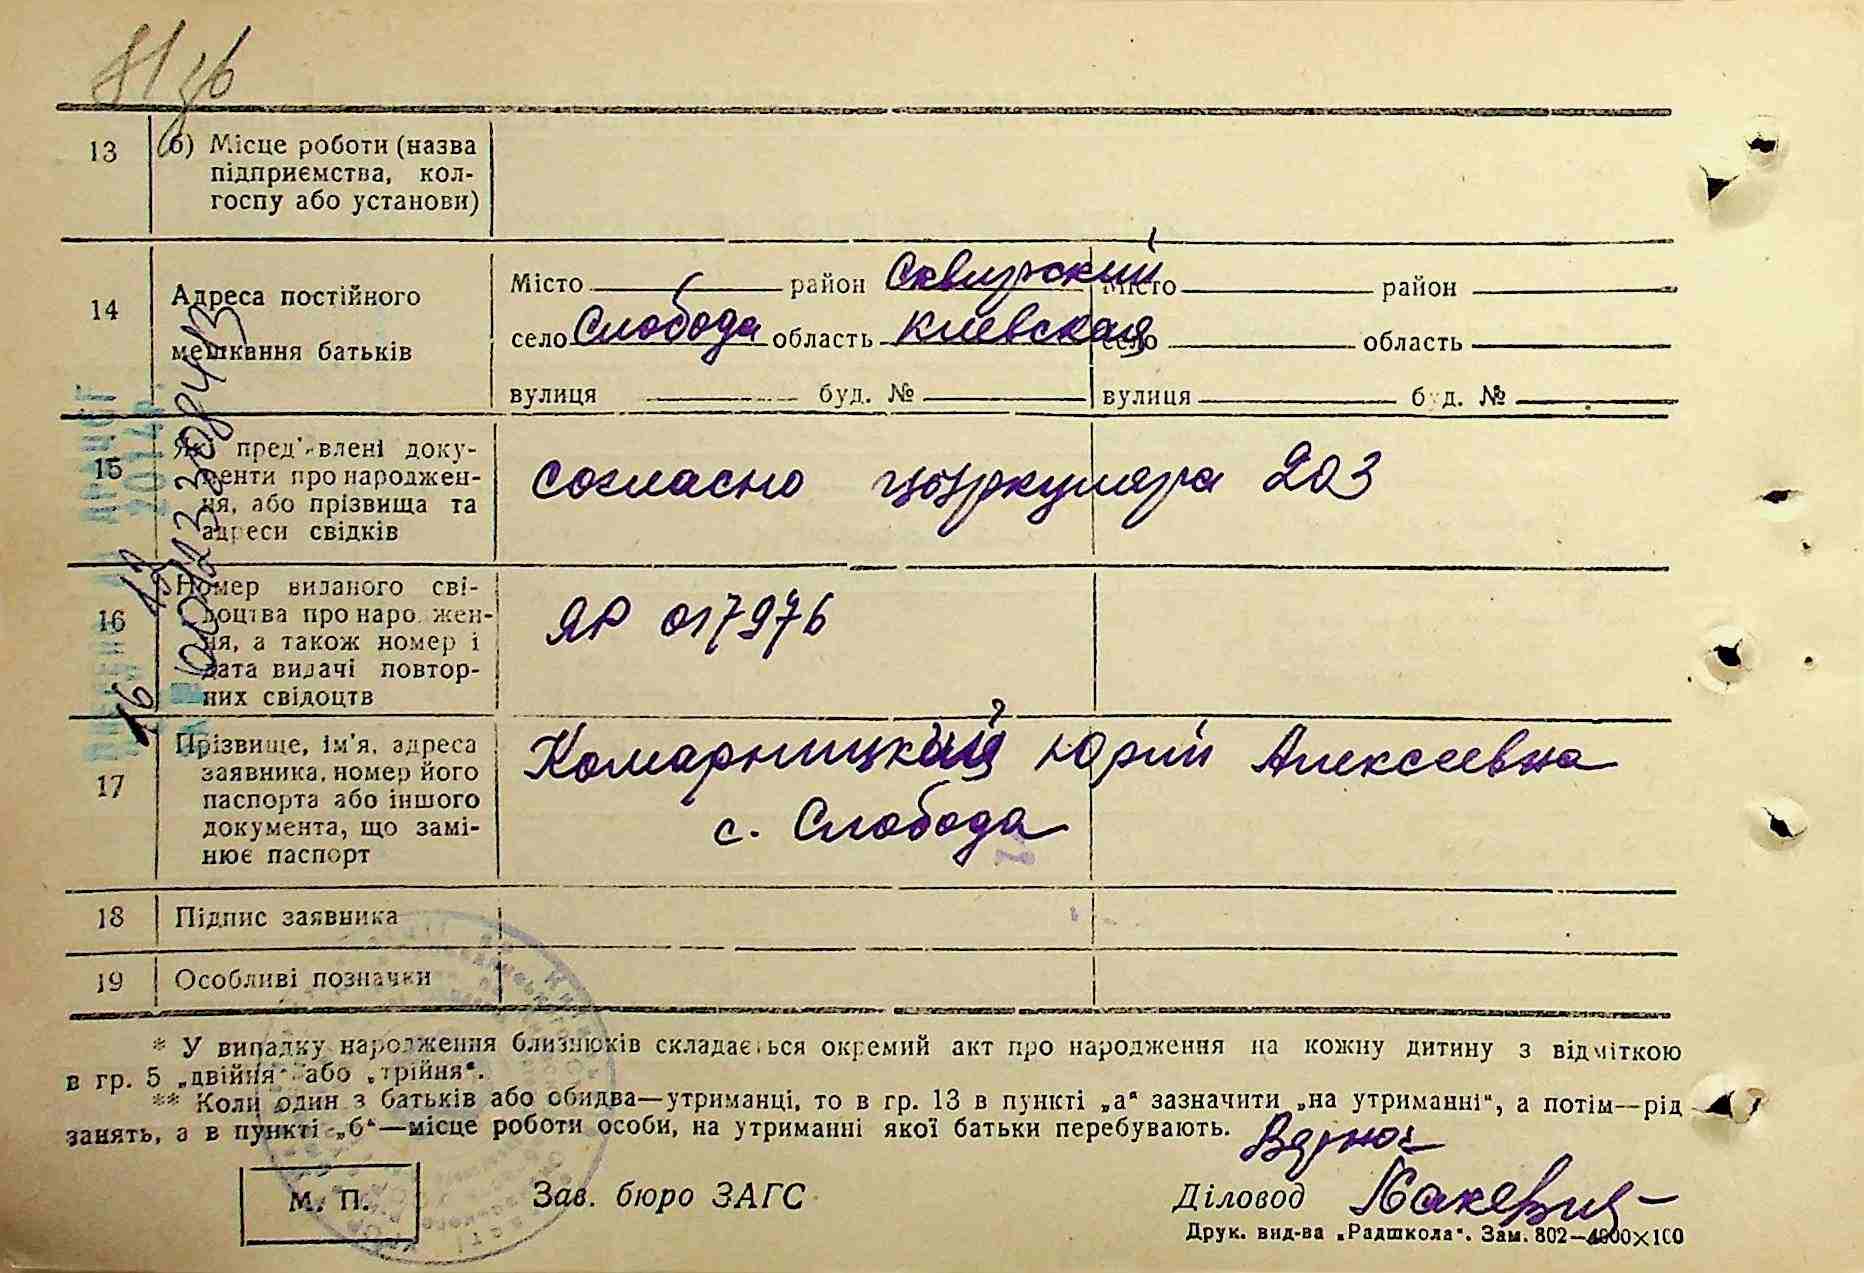 13
б) Місце роботи (назва
підприємства, кол-
госпу або установи)
14
Адреса постійного
мешкання батьків
Місто район Сквирский Місто район
село Слобода область Киевская село область
вулиця буд. № вулиця буд. №
15
Які пред'явлені доку-
менти про народжен-
ня, або прізвища та
адреси свідків
согласно циркуляра 203
16
Номер виданого сві-
доцтва про народжен-
ня, а також номер і
дата видачі повтор-
них свідоцтв
ЯР 017976
17
Прізвище, ім'я, адреса
заявника, номер його
паспорта або іншого
документа, що замі-
нює паспорт
Комарницкий Юрий Алексеевна
с. Слобода
18
Підпис заявника
19
Особливі позначки
* У випадку народження близнюків складається окремий акт про народження на кожну дитину з відміткою
в гр. 5 „двійня" або „трійня".
** Коли один з батьків або обидва—утриманці, то в гр. 13 в пункті „а" зазначити „на утриманні", а потім—рід
занять, а в пункті „б"—місце роботи особи, на утриманні якої батьки перебувають.
М. П.
Зав. бюро ЗАГС
Діловод
Друк. вид-ва „Радшкола". Зам. 802—4000×100